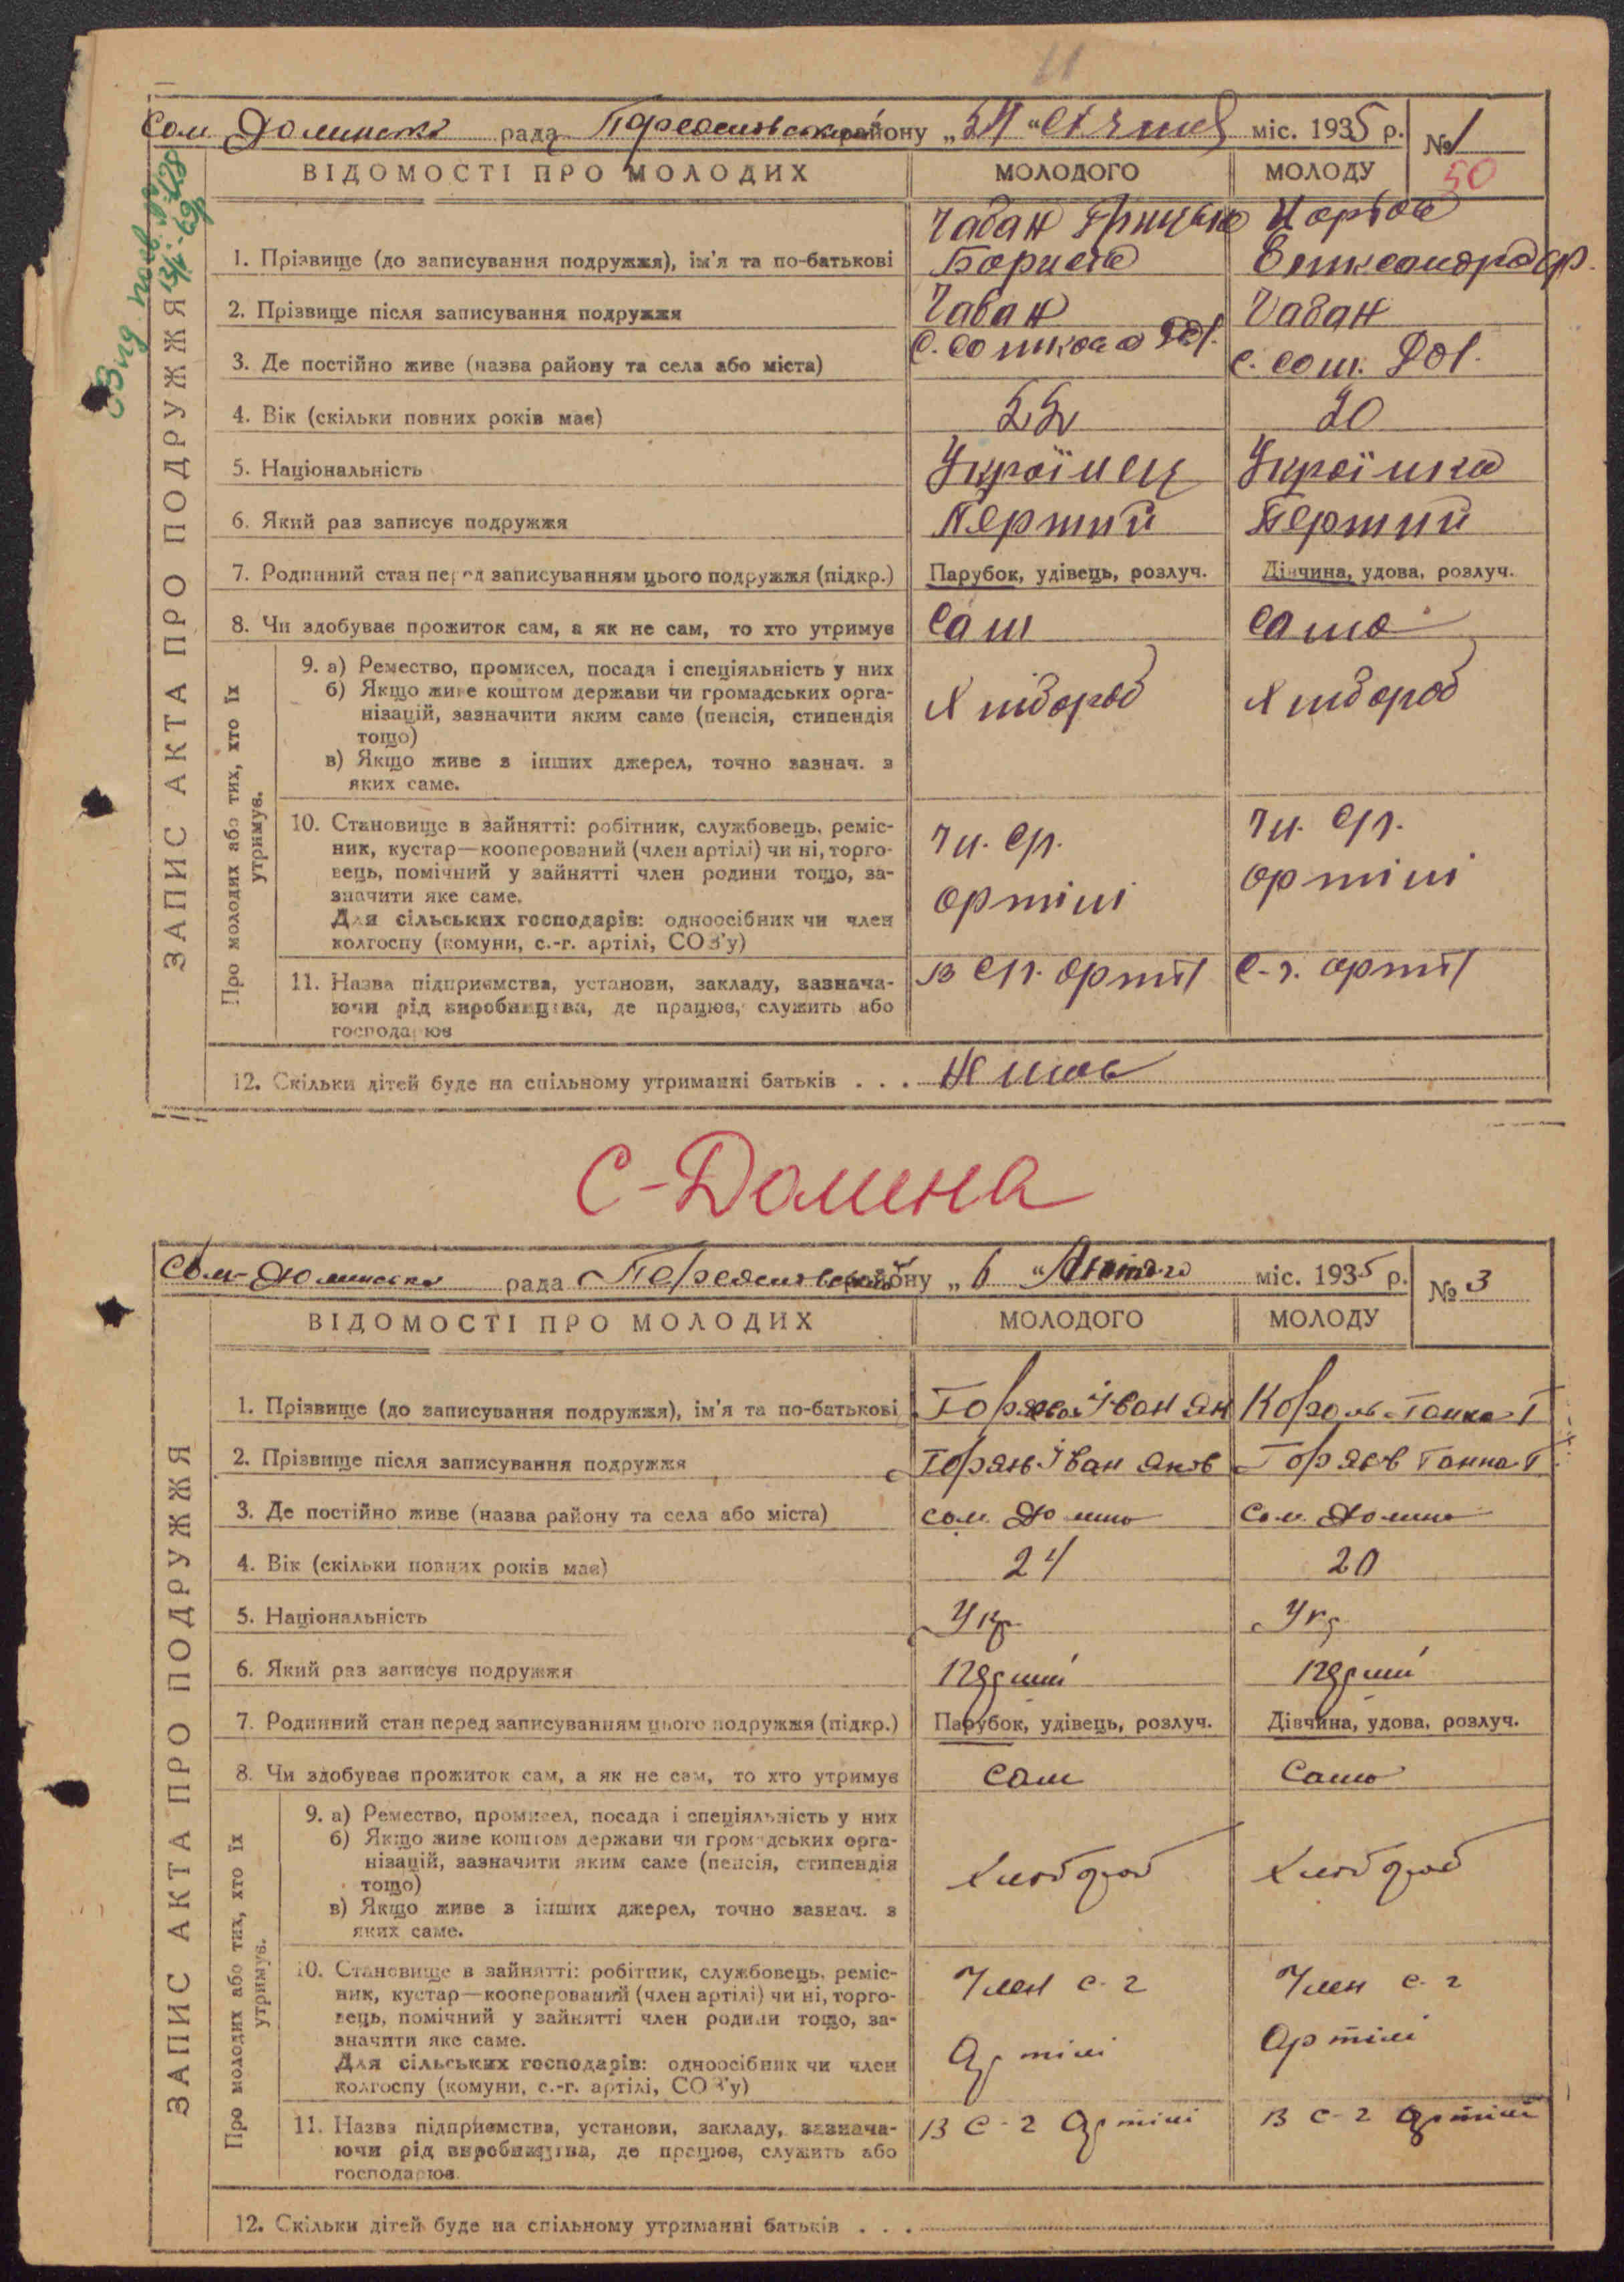 Сом Долинська рада Переяславського району „24“ січня міс. 1935 р. № 1
50
ВІДОМОСТІ ПРО МОЛОДИХ МОЛОДОГО МОЛОДУ
ЗАПИС АКТА ПРО ПОДРУЖЖЯ
1. Прізвище (до записування подружжя), ім'я та по-батькові Чабан Грицько
Бориса
2. Прізвище після записування подружжя Чабан Чабан
3. Де постійно живе (назва району та села або міста) с. сом. Дол.
4. Вік (скільки повних років має) 22 20
5. Національність Українец Українка
6. Який раз записує подружжя Перший Перший
7. Родинний стан перед записуванням цього подружжя (підкр.) Парубок, удівець, розлуч. Дівчина, удова, розлуч.
8. Чи здобуває прожиток сам, а як не сам, то хто утримує Сам Сама
Про молодих або тих, хто їх утримує.
9. а) Ремество, промисел, посада і спеціяльність у них
б) Якщо живе коштом держави чи громадських орга-
нізацій, зазначити яким саме (пенсія, стипендія
тощо)
в) Якщо живе з інших джерел, точно зазнач. з
яких саме.
Хлібороб Хлібороб
10. Становище в зайнятті: робітник, службовець, реміс-
ник, кустар—кооперований (член артілі) чи ні, торго-
вець, помічний у зайнятті член родини тощо, за-
значити яке саме.
Для сільських господарів: одноосібник чи член
колгоспу (комуни, с.-г. артілі, СОЗ'у)
чл. сг. артілі чл. сг. артілі
11. Назва підприємства, установи, закладу, зазнача-
ючи рід виробництва, де працює, служить або
господарює
В сг. артіл с-г. артіл
12. Скільки дітей буде на спільному утриманні батьків . . . Немає
С-Долина
Сом-Долинська рада Переяславського району „6“ Лютого міс. 1935 р. № 3
ВІДОМОСТІ ПРО МОЛОДИХ МОЛОДОГО МОЛОДУ
ЗАПИС АКТА ПРО ПОДРУЖЖЯ
1. Прізвище (до записування подружжя), ім'я та по-батькові Іван Як Король Ганна Г
2. Прізвище після записування подружжя Іван Яков Ганна Г
3. Де постійно живе (назва району та села або міста) Сом. Долина Сом. Долина
4. Вік (скільки повних років має) 24 20
5. Національність Укр Укр
6. Який раз записує подружжя Перший Перший
7. Родинний стан перед записуванням цього подружжя (підкр.) Парубок, удівець, розлуч. Дівчина, удова, розлуч.
8. Чи здобуває прожиток сам, а як не сам, то хто утримує Сам Сама
Про молодих або тих, хто їх утримує.
9. а) Ремество, промисел, посада і спеціяльність у них
б) Якщо живе коштом держави чи громадських орга-
нізацій, зазначити яким саме (пенсія, стипендія
тощо)
в) Якщо живе з інших джерел, точно зазнач. з
яких саме.
Хлібороб Хлібороб
10. Становище в зайнятті: робітник, службовець, реміс-
ник, кустар—кооперований (член артілі) чи ні, торго-
вець, помічний у зайнятті член родини тощо, за-
значити яке саме.
Для сільських господарів: одноосібник чи член
колгоспу (комуни, с.-г. артілі, СОЗ'у)
Член с-г Артілі Член с-г Артілі
11. Назва підприємства, установи, закладу, зазнача-
ючи рід виробництва, де працює, служить або
господарює
В с-г Артілі В с-г Артілі
12. Скільки дітей буде на спільному утриманні батьків . . .